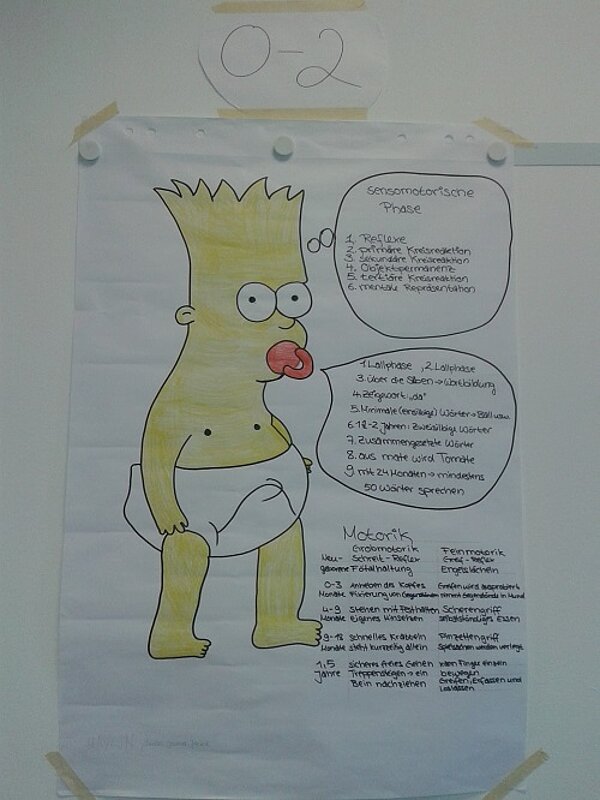 0-2
Sensomotorische
Phase
1. Reflexe
2. primäre Kreisreaktion
3. sekundäre Kreisreaktion
4. Objektpermanenz
5. tertiäre Kreisreaktion
6. mentale Repräsentation
1. Lallphase, 2 Lallphase
3. über die Silben → Wortbildung
4. Zeigewort: „da"
5. Minimale (einsilbige) Wörter → Ball usw.
6. 1,8-2 Jahren: Zweisilbige Wörter
7. Zusammengesetzte Wörter
8. aus mate wird Tomate
9. mit 24 Monaten → mindestens
50 Wörter sprechen
Motorik
Grobmotorik Feinmotorik
Neu- Schreit-Reflex Greif-Reflex
geborene Fötalhaltung Engelslächeln
0-3 Anheben des Kopfes Greifen wird ausprobiert
Monate Fixierung von Gegenständen nimmt Gegenstände in Mund
4-9 stehen mit Festhalten Scherengriff
Monate eigenes Hinsetzen selbstständiges Essen
9-18 schnelles Krabbeln Pinzettengriff
Monate steht kurzzeitig allein Spielsachen werden
1,5 sicheres freies Gehen Finger einzeln
Jahre Treppensteigen → ein bewegen
Bein nachziehen Greifen, Erfassen und
Loslassen